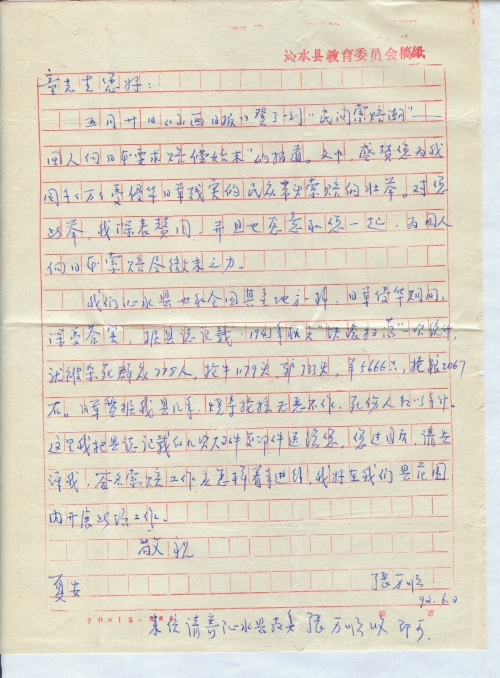 沁水县教育委员会稿纸
童先生您好：
五月廿日《山西日报》登了一则“民间索赔潮”——
国人向日本要求赔偿始末”的报道。文中，感赞您为我
国千千万万受侵华日军残害的民众带头索赔的壮举。对您
此举，我深表赞同，并且也愿意和您一起，为国人
向日本索赔尽微末之力。
我们沁水县也和全国其它地方一样，日军侵华期间，
深受荼害，据县志记载，1943年秋天“铁滚扫荡”一次统计，
就被杀死群众228人，抢牛1179头，驴333头，羊5666只，抢粮2067
石。日军曾据我县几年，烧杀抢掠无恶不作，死伤人
这里我把县志记载的几次大事件复印件送给您，您过目后，请告
诉我，签名索赔工作应怎样着手进行，我好在我们县范围
内开展此项工作。
敬祝
夏安
张万顺
92.6.2
20×15=
第 页
来信请寄沁水县教委 张万顺收 即可.